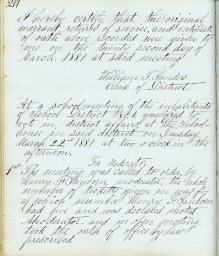 211
I hereby certify that the original
warrant, return of service, and certificate
of oath above recorded were given to
me on the twenty second day of
March, 1881 at said meeting
William F. Sanders
Clerk of District
At a school meeting of the inhabitants
of School District qualified to
vote in district affairs at the School-
house in said district on Tuesday
March 22nd 1881 at two o'clock in the
afternoon.
To Moderator
1st The meeting was called to order by
Henry moderator, the whole
number of votes given in was five
of which number Henry F. Sanborn
had five and was declared elected
Moderator and in open meeting
took the oath of office by law
prescribed